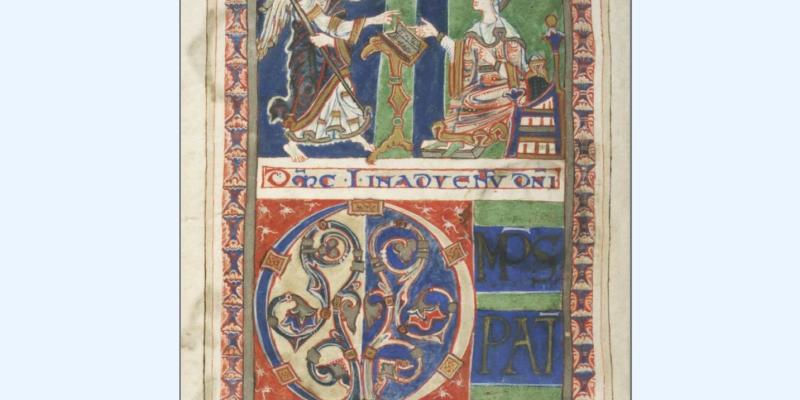 DM̄C · I INADVENTV DN̄I
MPS
PAT